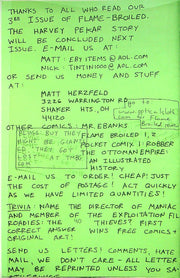 THANKS TO ALL WHO READ OUR
3RD ISSUE OF FLAME-BROILED.
THE HARVEY PEKAR STORY
WILL BE CONCLUDED NEXT
ISSUE. E-MAIL US AT:
MATT: EBYITEMS@AOL.COM
NICK: TINTIN1000@AOL.COM
OR SEND US MONEY AND STUFF
AT:
MATT HERZFELD
3226 WARRINGTON RD
SHAKER HTS, OH
44120
go to
for Flame
OTHER COMICS: MR EBANKS
FLAME BROILED 1, 2
POCKET COMIX 1 ROBBER
THE OTTOMAN EMPIRE:
AN ILLUSTRATED
HISTORY
E-MAIL US TO ORDER! CHEAP! JUST
THE COST OF POSTAGE! ACT QUICKLY
AS WE HAVE LIMITED QUANTITIES!
TRIVIA: NAME THE DIRECTOR OF MANIAC
AND MEMBER OF THE EXPLOITATION FIL
ROADIES: THE 40 THIEVES? FIRST
CORRECT ANSWER WINS FREE COMICS +
ORIGINAL ART!
SEND US LETTERS! COMMENTS, HATE
MAIL, WE DON'T CARE - ALL LETTER
MAY BE REPRINTED UNLESS YOU SA